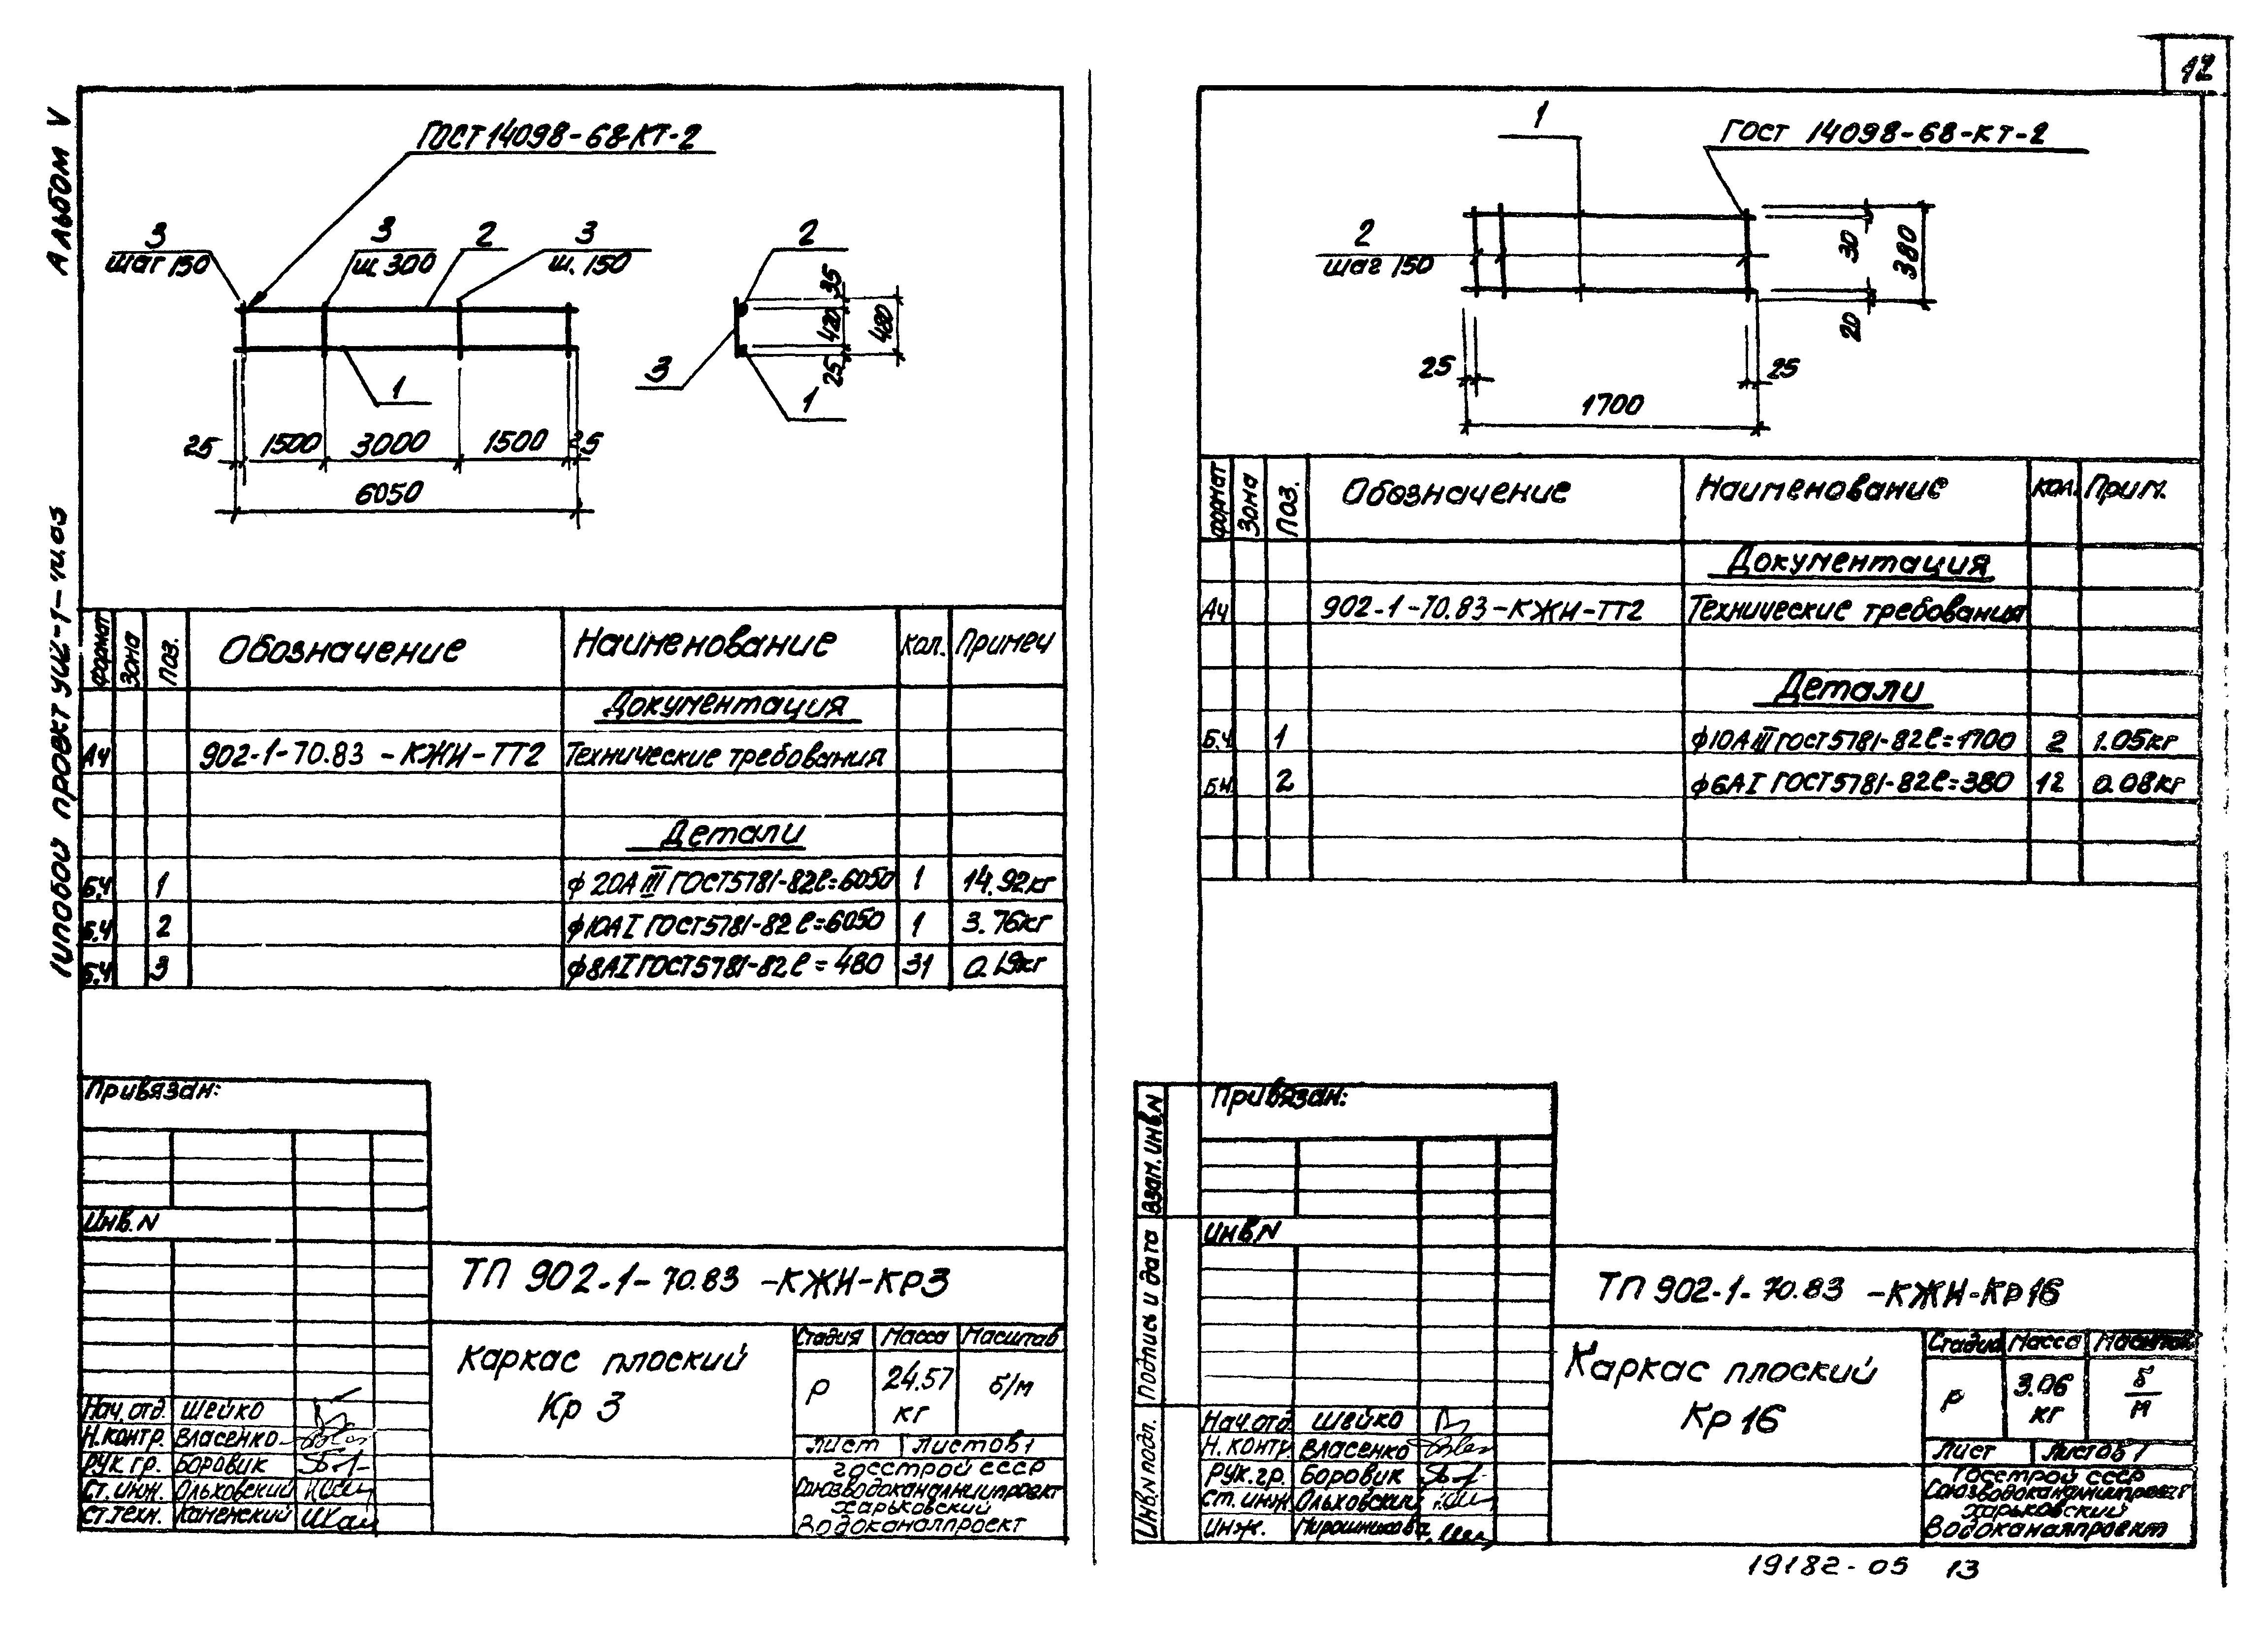 12
Альбом V
Типовой проект 902-1-70.83
ГОСТ 14098-68-КТ-2
3
шаг 150
3
ш. 300
2
3
ш. 150
1
25
1500
3000
1500
25
6050
2
3
1
35
420
25
480
формат
Зона
Поз.
Обозначение
Наименование
Кол.
Примеч
Документация
А4 902-1-70.83-КЖИ-ТТ2 Технические требования
Детали
Б.Ч 1 ф20АIII ГОСТ5781-82 ℓ=6050 1 14.92кг
Б.Ч 2 ф10АI ГОСТ5781-82 ℓ=6050 1 3.76кг
Б.Ч 3 ф8АI ГОСТ5781-82 ℓ=480 31 0.19кг
Привязан:
Инв.N
ТП 902-1-70.83-КЖИ-КР3
Каркас плоский
Кр 3
Стадия Масса Масштаб
Р 24.57 кг б/м
Лист Листов 1
Госстрой СССР
Союзводоканалниипроект
Харьковский
Водоканалпроект
Нач.отд. Шейко
Н.контр. Власенко
Рук.гр. Боровик
Ст.инж. Ольховский
Ст.техн. Каменский
1
ГОСТ 14098-68-КТ-2
2
шаг 150
30
380
20
25
25
1700
формат
Зона
Поз.
Обозначение
Наименование
Кол.
Прим.
Документация
А4 902-1-70.83-КЖИ-ТТ2 Технические требования
Детали
Б.Ч 1 ф10АIII ГОСТ5781-82 ℓ=1700 2 1.05кг
Б.Ч 2 ф6АI ГОСТ5781-82 ℓ=380 12 0.08кг
Привязан:
Инв.N
Взам.инв.N
Подпись и дата
Инв.N подл.
ТП 902-1-70.83-КЖИ-Кр16
Каркас плоский
Кр 16
Стадия Масса Масштаб
Р 3.06 кг б/м
Лист Листов 1
Госстрой СССР
Союзводоканалниипроект
Харьковский
Водоканалпроект
Нач.отд. Шейко
Н.контр Власенко
Рук.гр. Боровик
Ст.инж. Ольховский
Инж. Мирошникова
19182-05 13